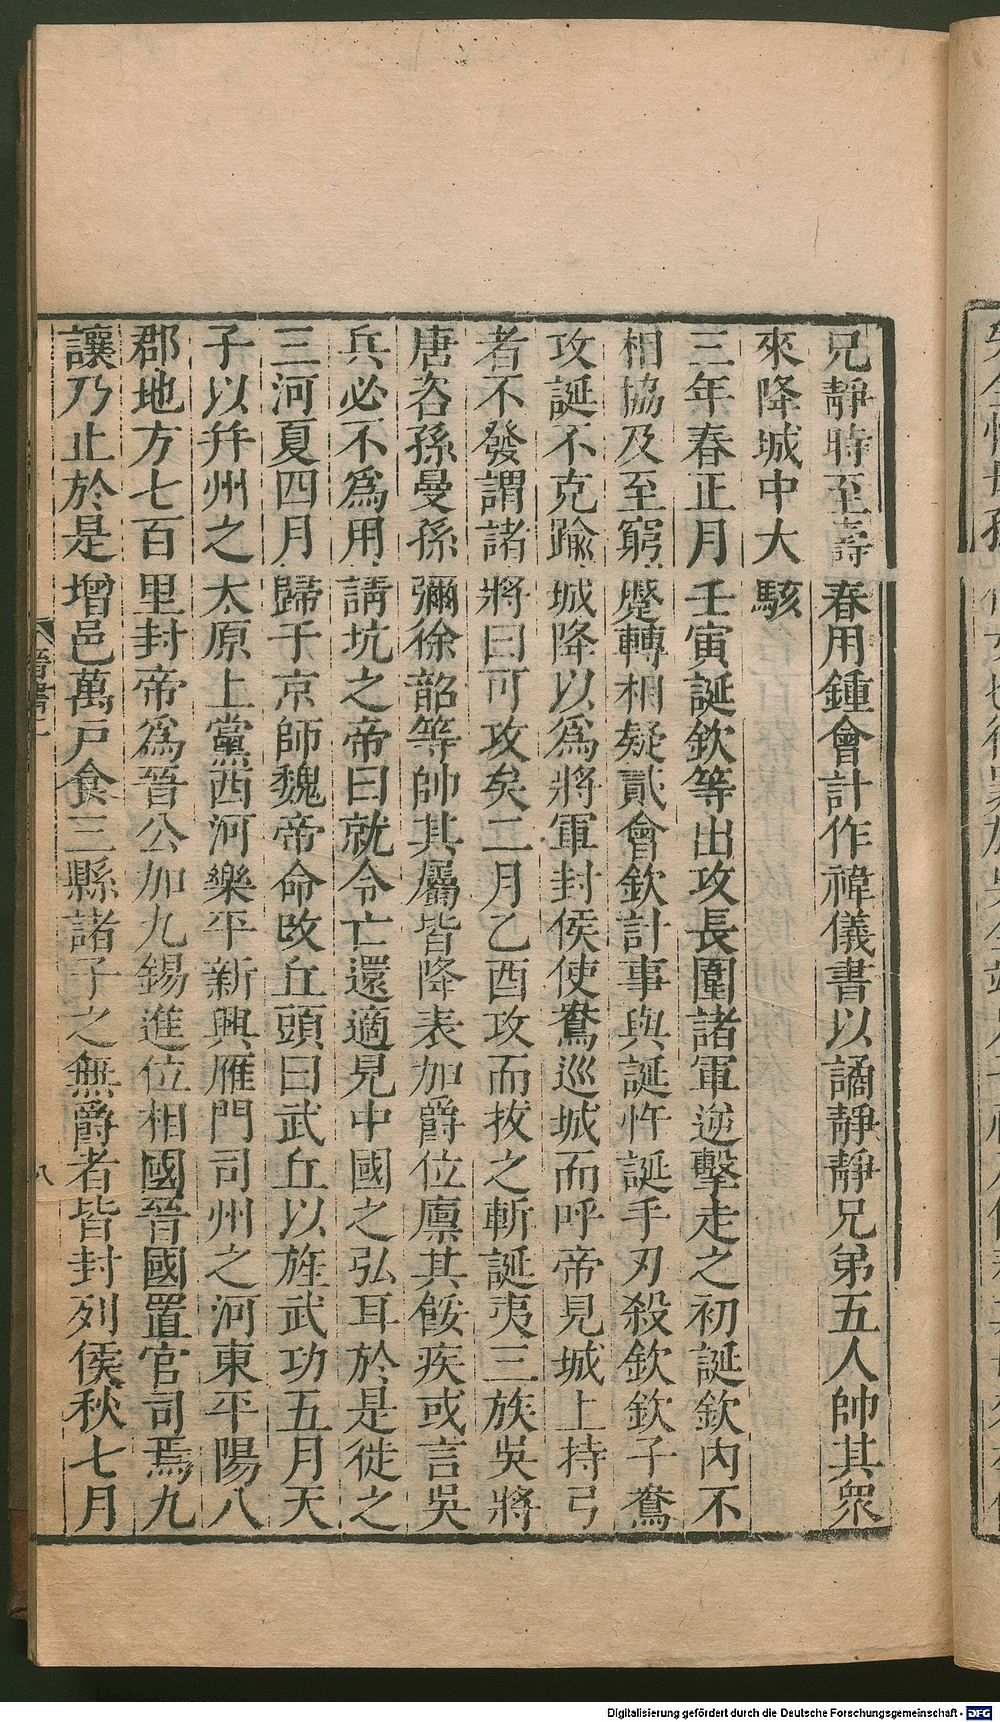 兄靜時至壽春用鍾會計作禕儀書以譎靜靜兄弟五人帥其衆
來降城中大駭
三年春正月壬寅誕欽等出攻長圍諸軍逆擊走之初誕欽內不
相協及至窮蹙轉相疑貳會欽計事與誕忤誕手刃殺欽欽子鴦
攻誕不克踰城降以爲將軍封侯使鴦巡城而呼帝見城上持弓
者不發謂諸將曰可攻矣二月乙酉攻而拔之斬誕夷三族吳將
唐咨孫曼孫彌徐韶等帥其屬皆降表加爵位廩其餒疾或言吳
兵必不爲用請坑之帝曰就令亡還適見中國之弘耳於是徙之
三河夏四月歸于京師魏帝命改丘頭曰武丘以旌武功五月天
子以并州之太原上黨西河樂平新興雁門司州之河東平陽八
郡地方七百里封帝爲晉公加九錫進位相國晉國置官司焉九
讓乃止於是增邑萬戶食三縣諸子之無爵者皆封列侯秋七月
八
Digitalisierung gefördert durch die Deutsche Forschungsgemeinschaft - DFG